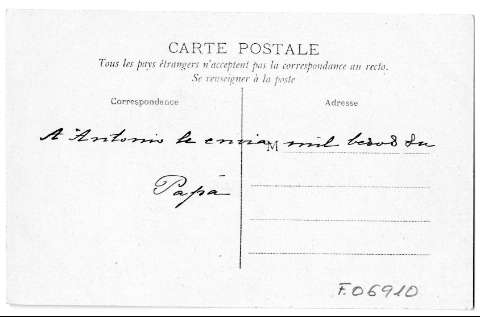 CARTE POSTALE
Tous les pays étrangers n'acceptent pas la correspondance au recto.
Se renseigner à la poste
Correspondance
Adresse
A Antonio le envia mil besos su
M
Papá
F.06910